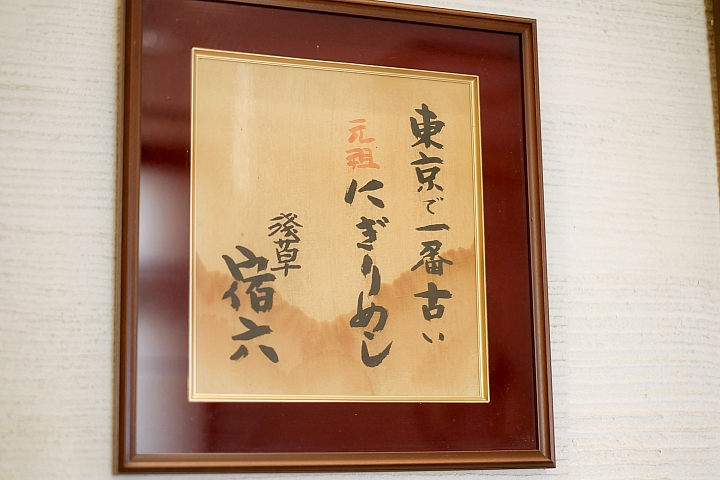 東京で一番古い
元祖にぎりめし
淺草
宿六